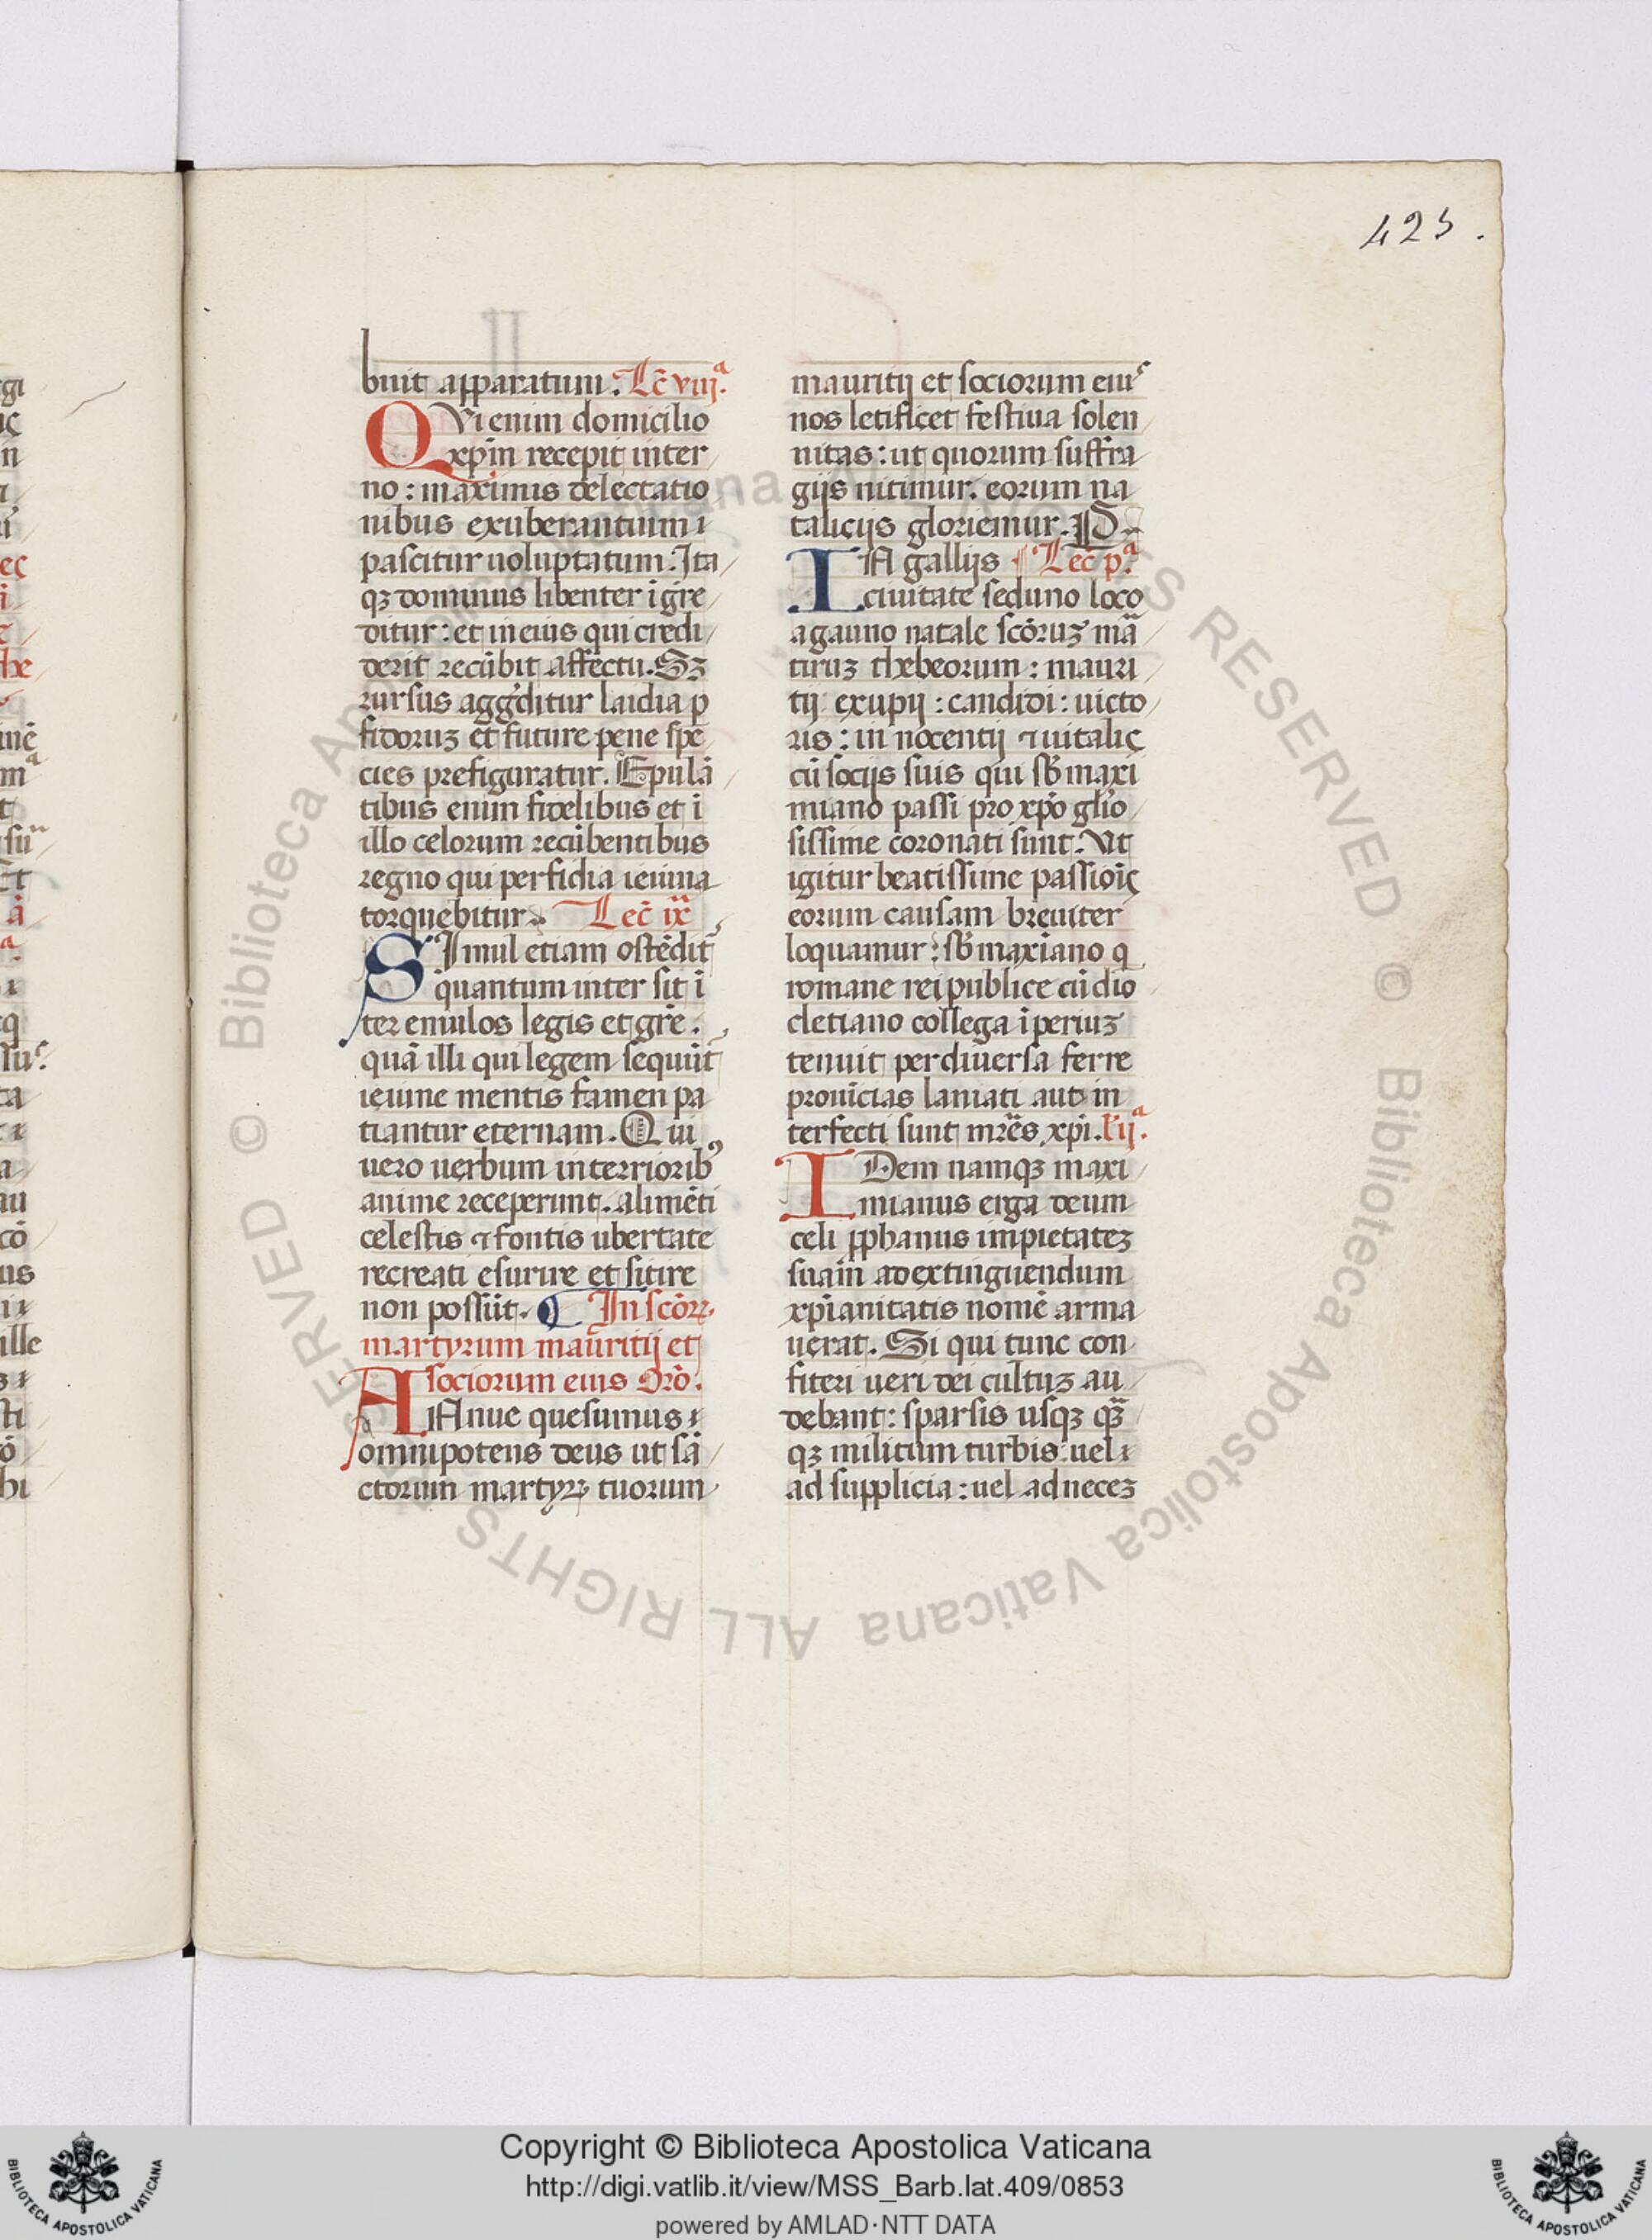 425.
buit apparatum. Lc̄ viijª.
QVi enim domicilio
xp̄m recepit inter
no: maximis delectatio
nibus exuberantium i
pascitur uoluptatum. Ita
qꝫ dominus libenter īgre
ditur: et in eius qui credi
derit recūbit affectu. Sꝫ
rursus aggditur laidia p
fidoruꝫ et future pene spē
cies prefiguratur. Epulā
tibus enim fidelibus et ī
illo celorum recūbentibus
regno qui perfidia ieiuna
torquebitur. Lec̄ ix
SImul etiam ostēdit̄
quantum inter sit ī
ter emulos legis et grē.
quā illi qui legem sequūt̄
ieiune mentis famen pa
tiantur eternam. Qui
uero uerbum interriorib9
anime receperunt. alimēti
celestis ⁊ fontis ubertate
recreati esurire et sitire
non possūt. In scōꝝ
martyrum mauritij et
sociorum eius Orō.
ANnue quesumus
omnipotens deus ut sā
ctorum martyꝝ tuorum
mauritij et sociorum eiuˢ
nos letificet festiua solen
nitas: ut quorum suffra
gijs nitimur. eorum na
talicijs gloriemur. P
IN gallijs Lec̄ pª.
ciuitate seduno loco
agauno natale scōruꝫ mā
tiruꝫ thebeorum: mauri
tij exupij: candidi: uicto
ris: in nocentij ⁊ uitalis
cū socijs suis qui sb̄ maxi
miano passi pro xp̄o glio
sissime coronati sunt. Vt
igitur beatissime passiōis
eorum causam breuiter
loquamur: sb̄ maxiano q
romane rei publice cū dio
cletiano collega īperiuꝫ
tenuit per diuersa ferre
prouīcias laniati aut in
terfecti sunt mr̄es xp̄i. l'ijª.
IDem namqꝫ maxi
mianus erga deum
celi pphanus impietateꝫ
suam ad extinguendum
xp̄ianitatis nomē arma
uerat. Si qui tunc con
fiteri ueri dei cultuꝫ au
debant: sparsis usqꝫ qꝫ
qꝫ militum turbis: uel
ad supplicia: uel ad neceꝫ
© Biblioteca Apostolica Vaticana ALL RIGHTS RESERVED © Biblioteca Apostolica Vaticana ALL RIGHTS RESERVED
Copyright © Biblioteca Apostolica Vaticana
http://digi.vatlib.it/view/MSS_Barb.lat.409/0853
powered by AMLAD·NTT DATA
BIBLIOTECA APOSTOLICA VATICANA
BIBLIOTECA APOSTOLICA VATICANA